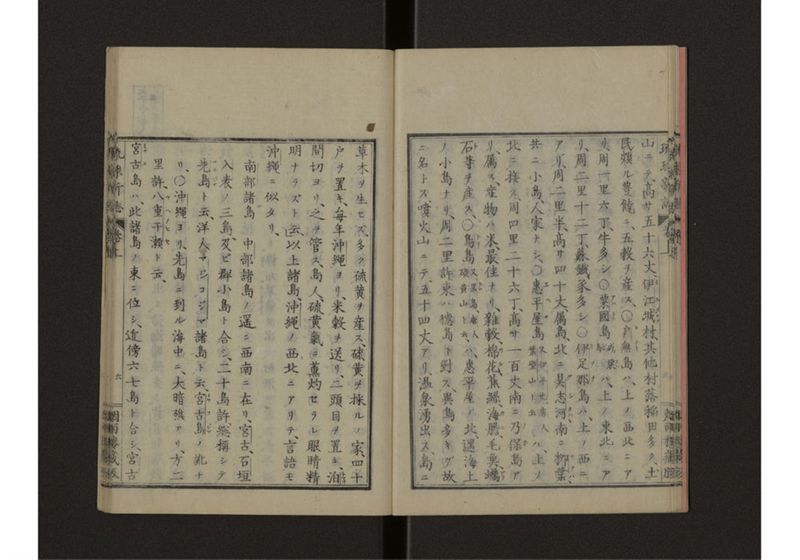 山ニテ高サ五十六丈、伊江城村、其他村落稻田多ク、土
民頗ル豊饒ニ、五穀ヲ産ス、〇島ハ、上ノ西北ニア
リ、周一里六丁、牛多シ、〇粟國島ハ、上ノ東北ニア
リ、周二里十二丁、蘇鐵家多シ、〇伊是那島ハ、上ノ西ニ
アリ、周二里半、高サ四十丈、属島、北ニ具志河、南ニ柳葉
共ニ小島人家ナシ、〇惠平屋島ハ上ノ
北ニ接ス、周四里二十六丁、高サ一百丈、南ニ乃保島ア
リ、属ス、産物ハ米最佳ナリ、雜穀棉花蕉絲海屋毛魚蠣
石等ヲ産ス、〇鳥島ハ、惠平屋ノ北、遥海上
ノ小島ナリ、周二里許、東ハ德島ト對ス、異鳥多キカ故
ニ名トス、噴火山ニテ五十四丈アリ、温泉湧出ス、島ニ
草木ヲ生セス、多ク硫黄ヲ産ス、硫黄ヲ採ルノ家、四十
戸ヲ置キ、毎年沖繩ヨリ、米穀ヲ送リ、二頭目ヲ置キ、泊
間切ヨリ、之ヲ管ス、島人、硫黄氣ニ薫灼セラレ、眼睛精
明ナラスト云、以上諸島、沖繩ノ西北ニアリテ、言語モ
沖繩ニ似タリ、
南部諸島 中部諸島ノ遥ニ西南ニ在リ、宮古、石垣
入表ノ三島及ヒ群小島ト合シ、二十島許、總稱シテ
先島ト云、洋人マジコジマ諸島ト云、宮古島ノ訛ナ
リ、〇沖繩ヨリ、先島ニ到ル海中ニ、大暗礁アリ、方二
里許、八重干瀬ト云、
宮古島ハ、此諸島ノ東ニ位シ、近傍六七島ト合シ、宮古
琉球新誌 卷上
六
烟雨樓藏版